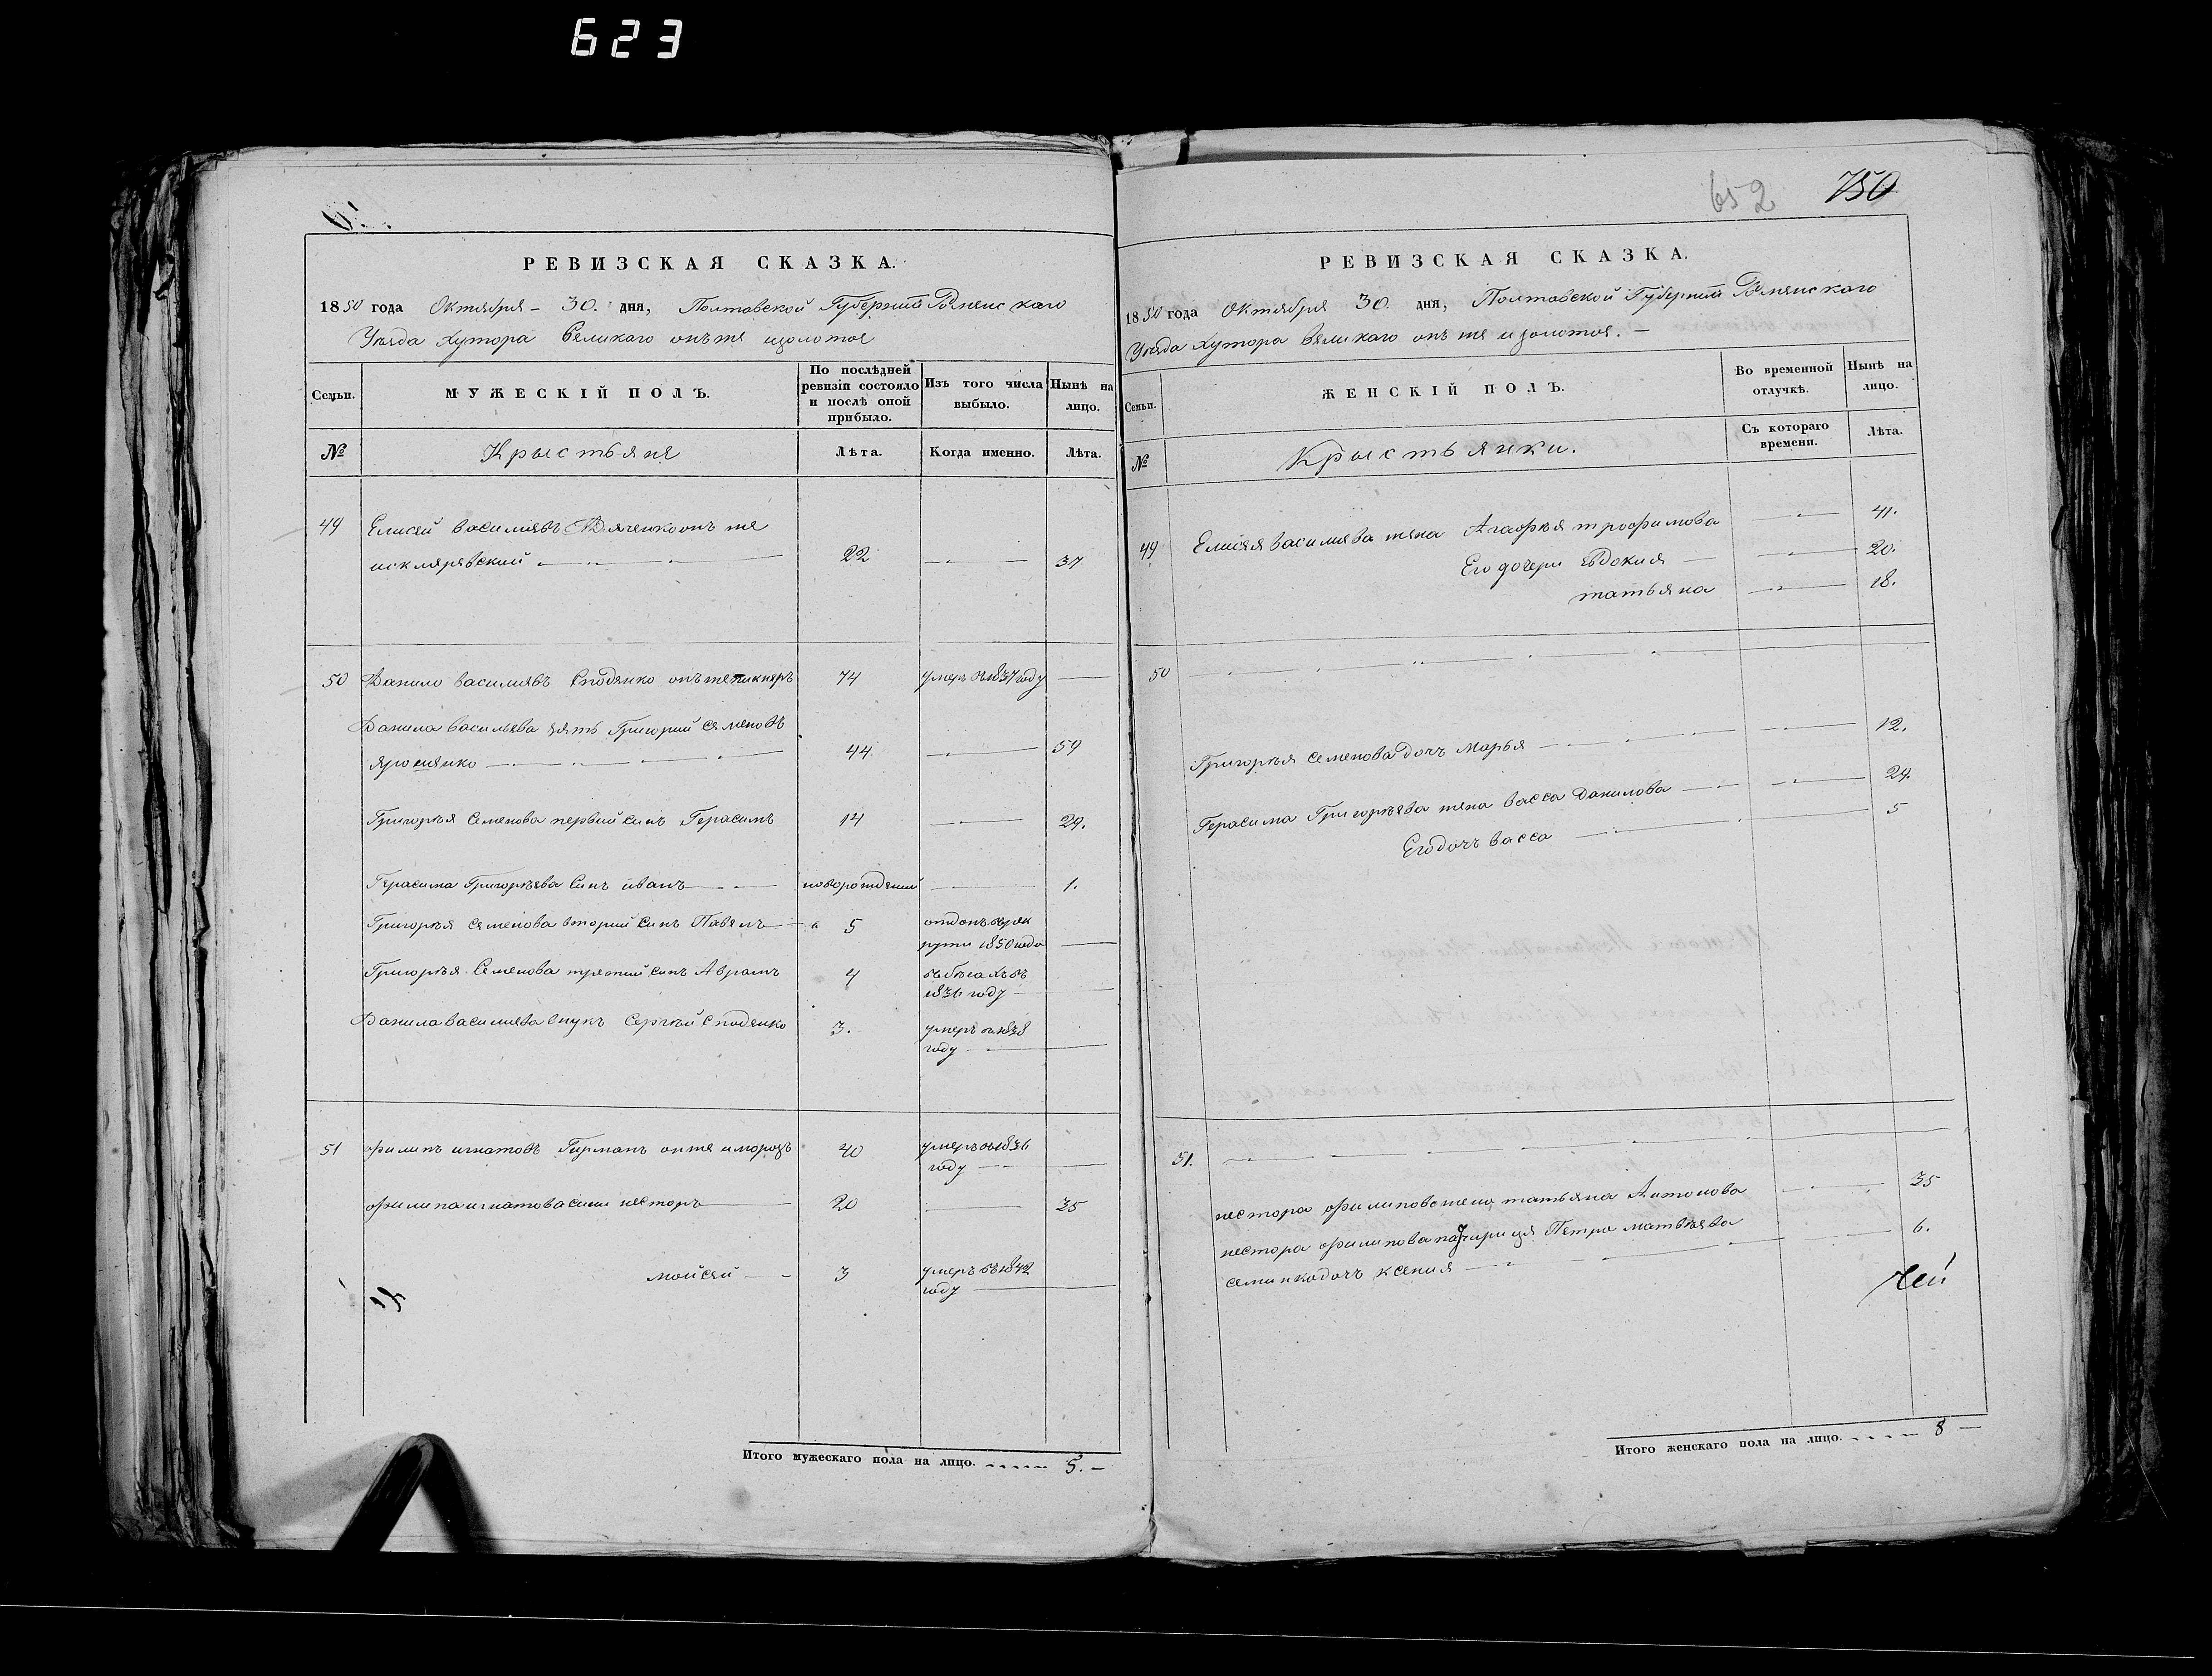 623
652 750
РЕВИЗСКАЯ СКАЗКА.
1850 года Октября - 30. дня, Полтавской Губернии Роменскаго
Уезда Хутора Великаго онъ же изолотое
Семьи. МУЖЕСКІЙ ПОЛЪ. По послѣдней ревизіи состояло и послѣ оной прибыло. Изъ того числа выбыло. Нынѣ на лицо.
№ Крыстьяне Лѣта. Когда именно. Лѣта.
49 Елисей василиевъ онъ же
22 37
50 Данило василиевъ Сподянко онъже 74 умеръ въ1837году
Данила васильева зять Григорий семеновъ
44 59
Григорѣя Семенова первый синъ Герасимъ 14 29.
Герасима Григорѣева синъ иванъ новорожденый 1.
Григорѣя семенова вторий синъ Павелъ 5 отданъ врек
рути 1850года
Григорѣя Семенова третий синъ Аврамъ 4 въбегахъ въ
1836 году
Данила василиева внукъ Сергѣй Споденко 3. умеръ в1838
году
51 филипъ игнатовъ Гирманъ онже иморозъ 40 умеръ в1836
году
филипа игнатова сини несторъ 20 35
мойсей 3 умеръ въ1842
году
Итого мужескаго пола на лицо. 5.
РЕВИЗСКАЯ СКАЗКА.
1850 года Октября 30. дня, Полтавской Губернии Роменскаго
Уезда Хутора Великаго онъ же изолотое.
Семьи. ЖЕНСКІЙ ПОЛЪ. Во временной отлучкѣ. Нынѣ на лицо.
№ Крыстьянки. Съ котораго времени. Лѣта.
49 Елисея василиева жена Агафѣя трофимова 41.
Его дочери Евдокия 20.
татьяна 18.
50
Григорѣя семенова дочъ Марья 12.
Герасима Григорѣева жена васса Данилова 29.
Егодочъ васса 5
51.
нестора филипова жена татьяна Антонова 35
нестора филипова падчирица Петра матвѣева 6.
семинкодочъ ксения
Итого женскаго пола на лицо. 8